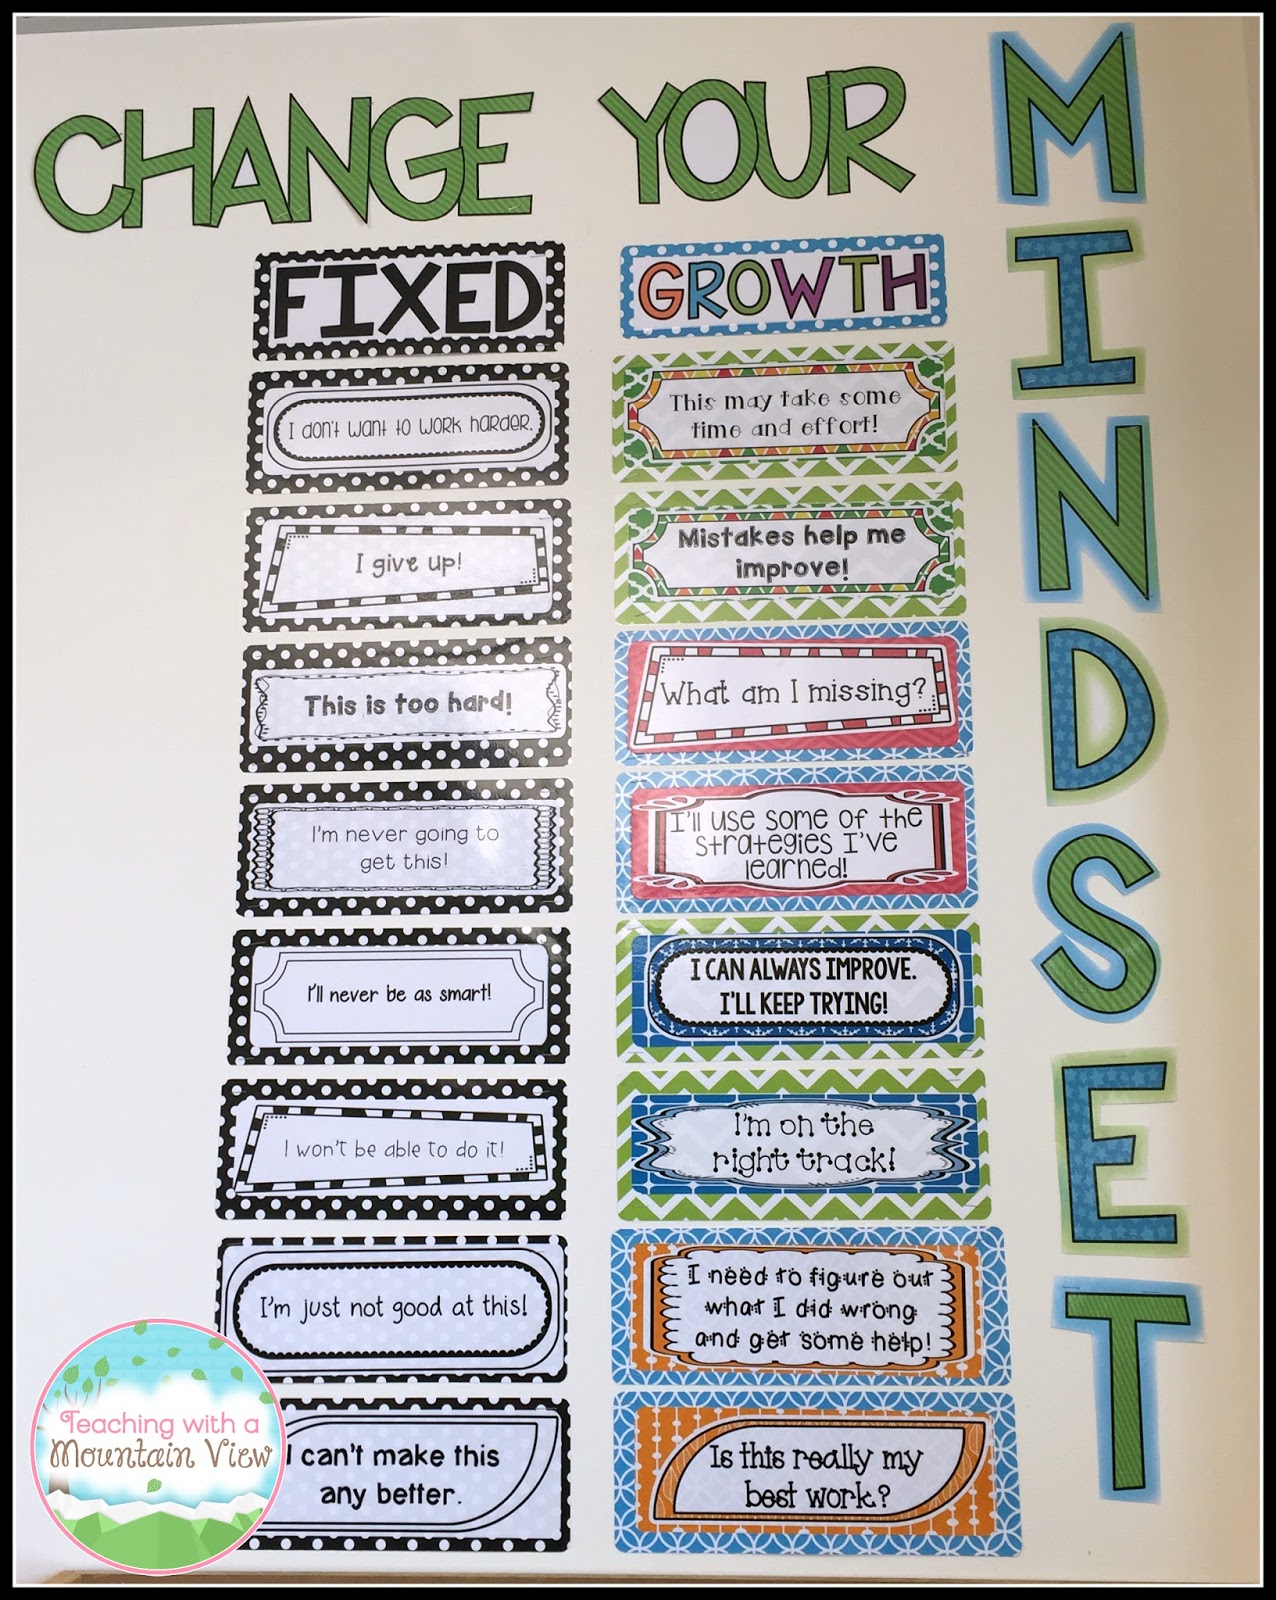 CHANGE YOUR
MINDSET
FIXED
GROWTH
I don't want to work harder.
This may take some
time and effort!
I give up!
Mistakes help me
improve!
This is too hard!
What am I missing?
I'm never going to
get this!
I'll use some of the
strategies I've
learned!
I'll never be as smart!
I CAN ALWAYS IMPROVE.
I'LL KEEP TRYING!
I won't be able to do it!
I'm on the
right track!
I'm just not good at this!
I need to figure out
what I did wrong
and get some help!
I can't make this
any better.
Is this really my
best work?
Teaching with a
Mountain View